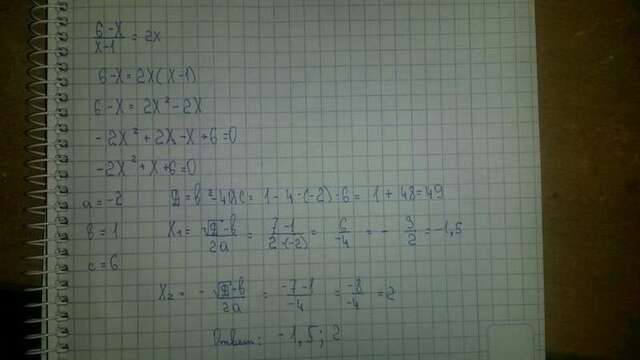 (6-x)/(x-1) = 2x
6-x=2x(x-1)
6-x=2x²-2x
-2x²+2x-x+6=0
-2x²+x+6=0
a=-2 D=b²-4ac= 1-4·(-2)·6= 1+48=49
b=1 x₁= (√D-b)/(2a) = (7-1)/(2·(-2)) = 6/(-4) = - 3/2 =-1,5
c=6
x₂= (-√D-b)/(2a) = (-7-1)/(-4) = (-8)/(-4) =2
Ответ: -1,5; 2